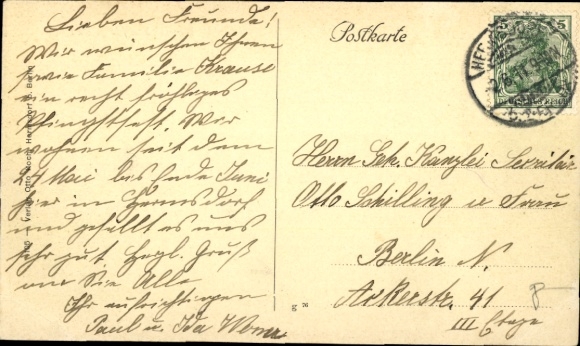 Lieben Freunde!
Wir wünschen Ihnen
sowie Familie Krause
ein recht fröhliches
Pfingstfest. Wir
wohnen seit dem
Mai bis Ende Juni
hier in Hermsdorf
und gefällt es uns
sehr gut. Herzl. Gruß
an Sie Alle
Ihr aufrichtigen
Paul u. Ida
Postkarte
Herrn Sek. Kanzlei Secretär
Otto Schilling u Frau
Berlin N.
Ackerstr. 41
III Etage
5 5
DEUTSCHES REICH
76
Verlag Otto Hermsdorf b. Berlin